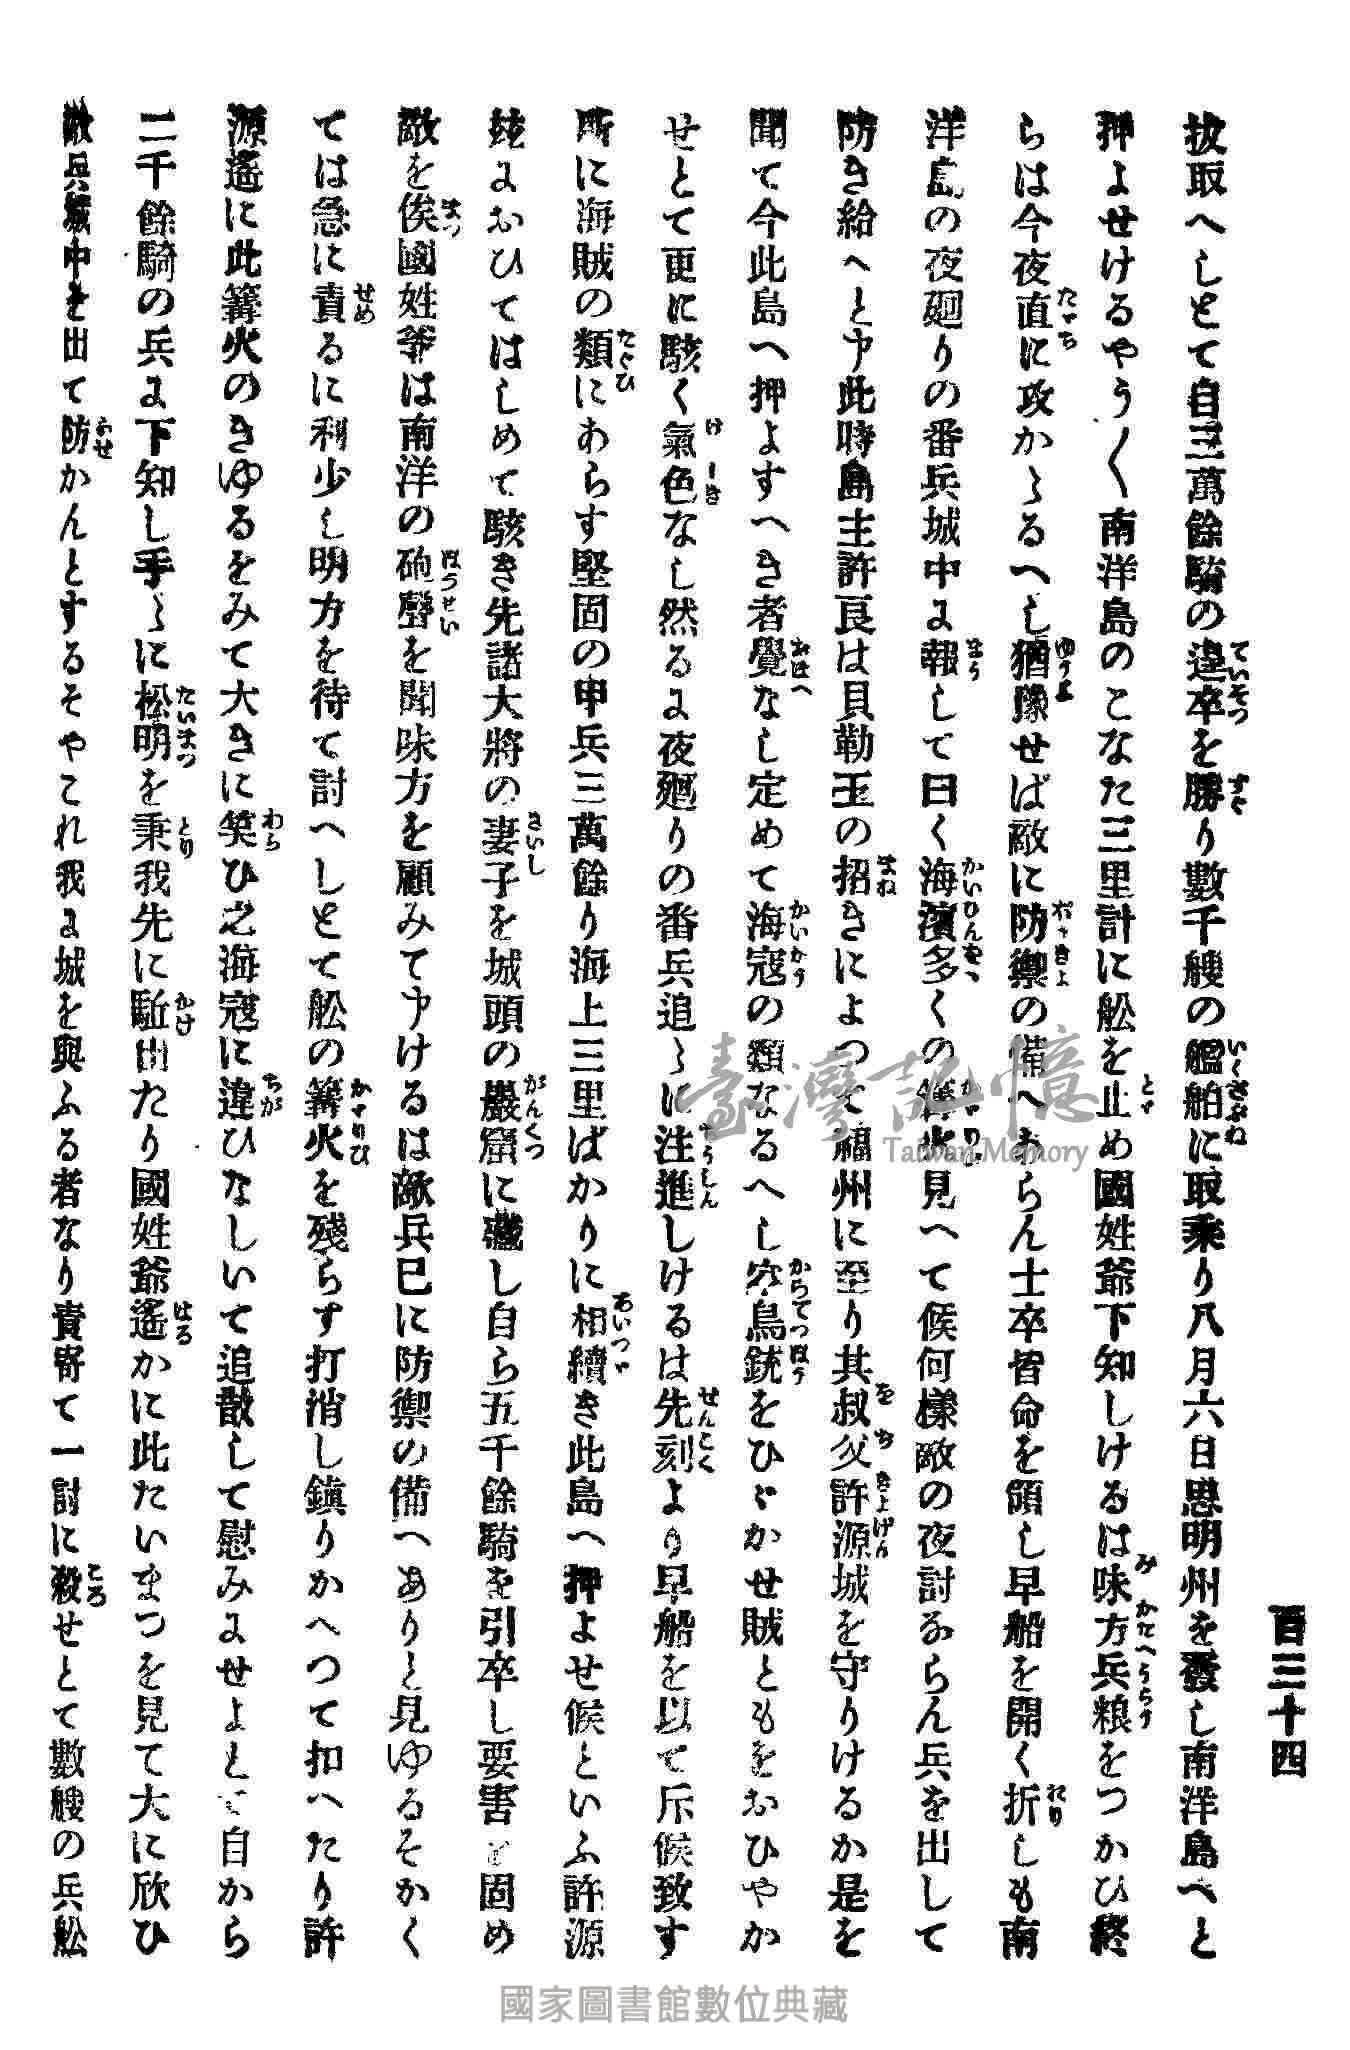 百三十四
抜取へしとて自三萬餘騎の逞卒を勝り數千艘の艦舶に取乗り八月六日思明州を發し南洋島へと
押よせけるやう〱南洋島のこなた三里計に舩を止め國姓爺下知しけるは味方兵粮をつかひ終
らは今夜直に攻かゝるへし猶豫せば敵に防禦の備へあらん士卒皆命を領し早船を開く折しも南
洋島の夜廻りの番兵城中よ報して曰く海濱多くの篝火見へて候何樣敵の夜討ならん兵を出して
防き給へと申此時島主許良は貝勒王の招きによつて福州に至り其叔父許源城を守りけるか是を
聞て今此島へ押よすへき者覺なし定めて海寇の類なるへし空鳥銃をひゞかせ賊ともをおひやか
せとて更に駭く氣色なし然るよ夜廻りの番兵追ゝに注進しけるは先刻より早船を以て斥候致す
所に海賊の類にあらす堅固の甲兵三萬餘り海上三里ばかりに相續き此島へ押よせ候といふ許源
玆よおひてはしめて駭き先諸大將の妻子を城頭の巖窟に藏し自ら五千餘騎を引卒し要害を固め
敵を俟國姓爺は南洋の砲聲を聞味方を顧みて申けるは敵兵已に防禦の備へありと見ゆるそかく
ては急に責るに利少し明方を待て討へしとて舩の篝火を殘らす打消し鎭りかへつて扣へたり許
源遙に此篝火のきゆるをみて大きに笑ひ之海寇に違ひなしいて追散して慰みよせよとて自から
二千餘騎の兵よ下知し手ゝに松明を秉我先に駈出たり國姓爺遙かに此たいまつを見て大に欣ひ
敵兵城中を出て防かんとするそやこれ我よ城を與ふる者なり責寄て一討に殺せとて數艘の兵舩
ていそつ
すぐ
いくさぶね
とゞ
みかたへうらう
たゞち
ゆうよ
ばうぎよ
をり
ほう
かいひんをゝ
かゞりひ
まね
をぢきよげん
おぼへ
かいかう
からてつぽう
けしき
ちうしん
せんこく
たぐひ
あいつゞ
さいし
がんくつ
まつ
はうせい
せめ
かゞりひ
わら
ちが
たいまつ
とり
かけ
はる
ふせ
ころ
臺灣記憶
Taiwan Memory
國家圖書館數位典藏